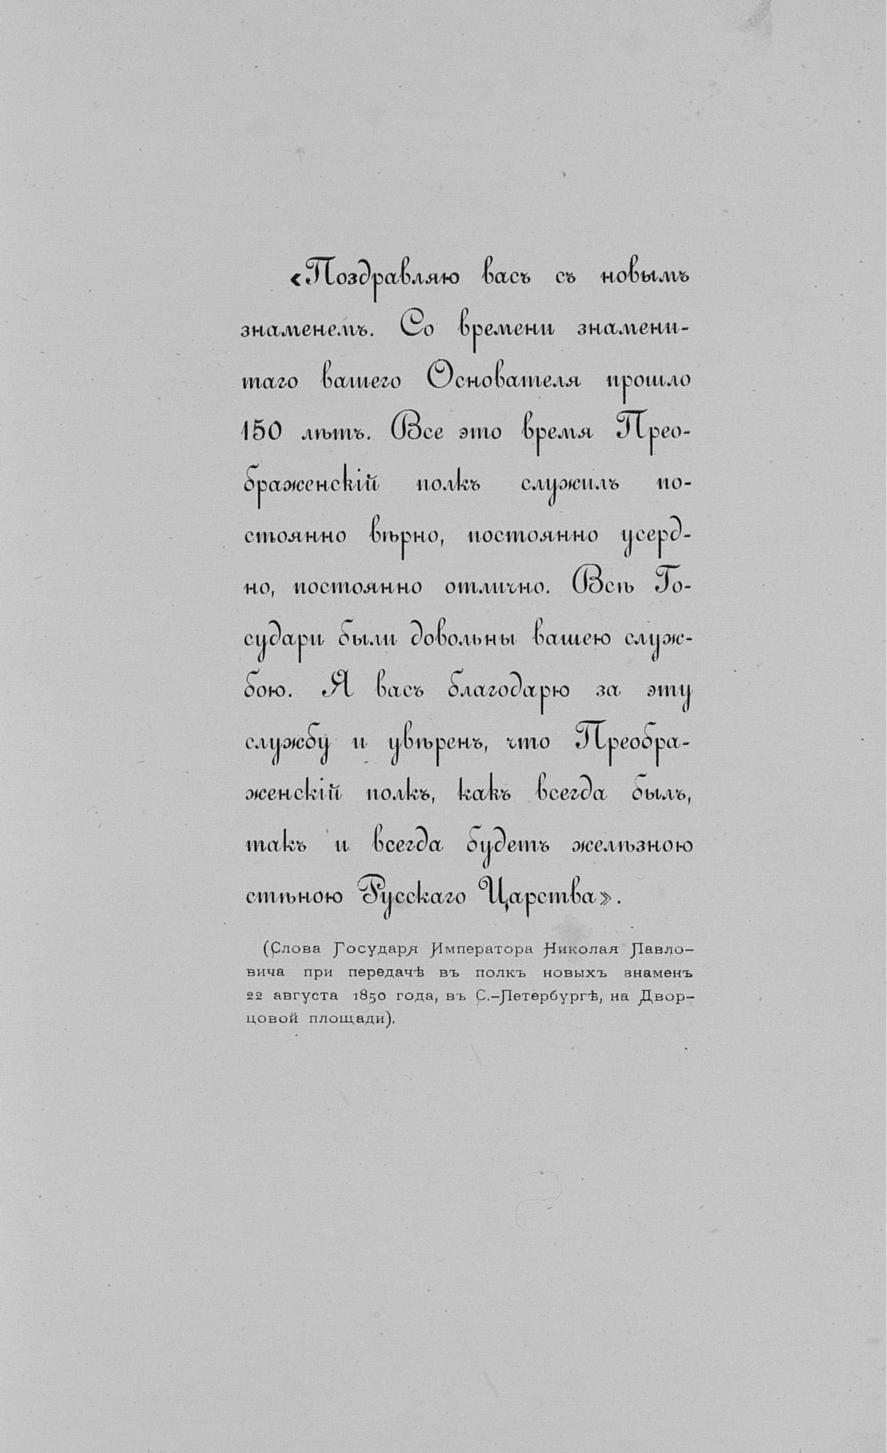 «Поздравляю васъ съ новымъ
знаменемъ. Со времени знамени-
таго вашего Основателя прошло
150 лѣтъ. Все это время Прео-
браженскій полкъ служилъ по-
стоянно вѣрно, постоянно усерд-
но, постоянно отлично. Всѣ Го-
судари были довольны вашею служ-
бою. Я васъ благодарю за эту
службу и увѣренъ, что Преобра-
женскій полкъ, какъ всегда былъ,
такъ и всегда будетъ желѣзною
стѣною Русскаго Царства».
(Слова Государя Императора Николая Павло-
вича при передачѣ въ полкъ новыхъ знаменъ
22 августа 1850 года, въ С.-Петербургѣ, на Двор-
цовой площади).